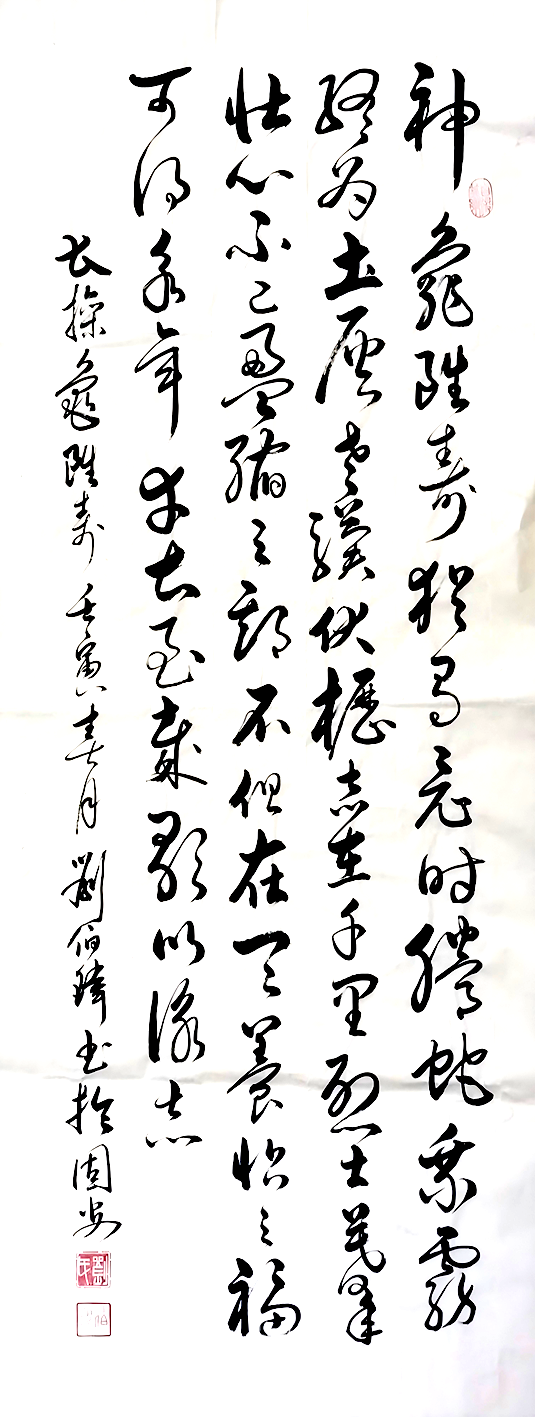 神龜雖壽猶有竟時騰蛇乘霧
終為土灰老驥伏櫪志在千里烈士暮年
壯心不已盈縮之期不但在天養怡之福
可得永年幸甚至哉歌以詠志
曹操龜雖壽壬寅春月劉伯瑋书於固安